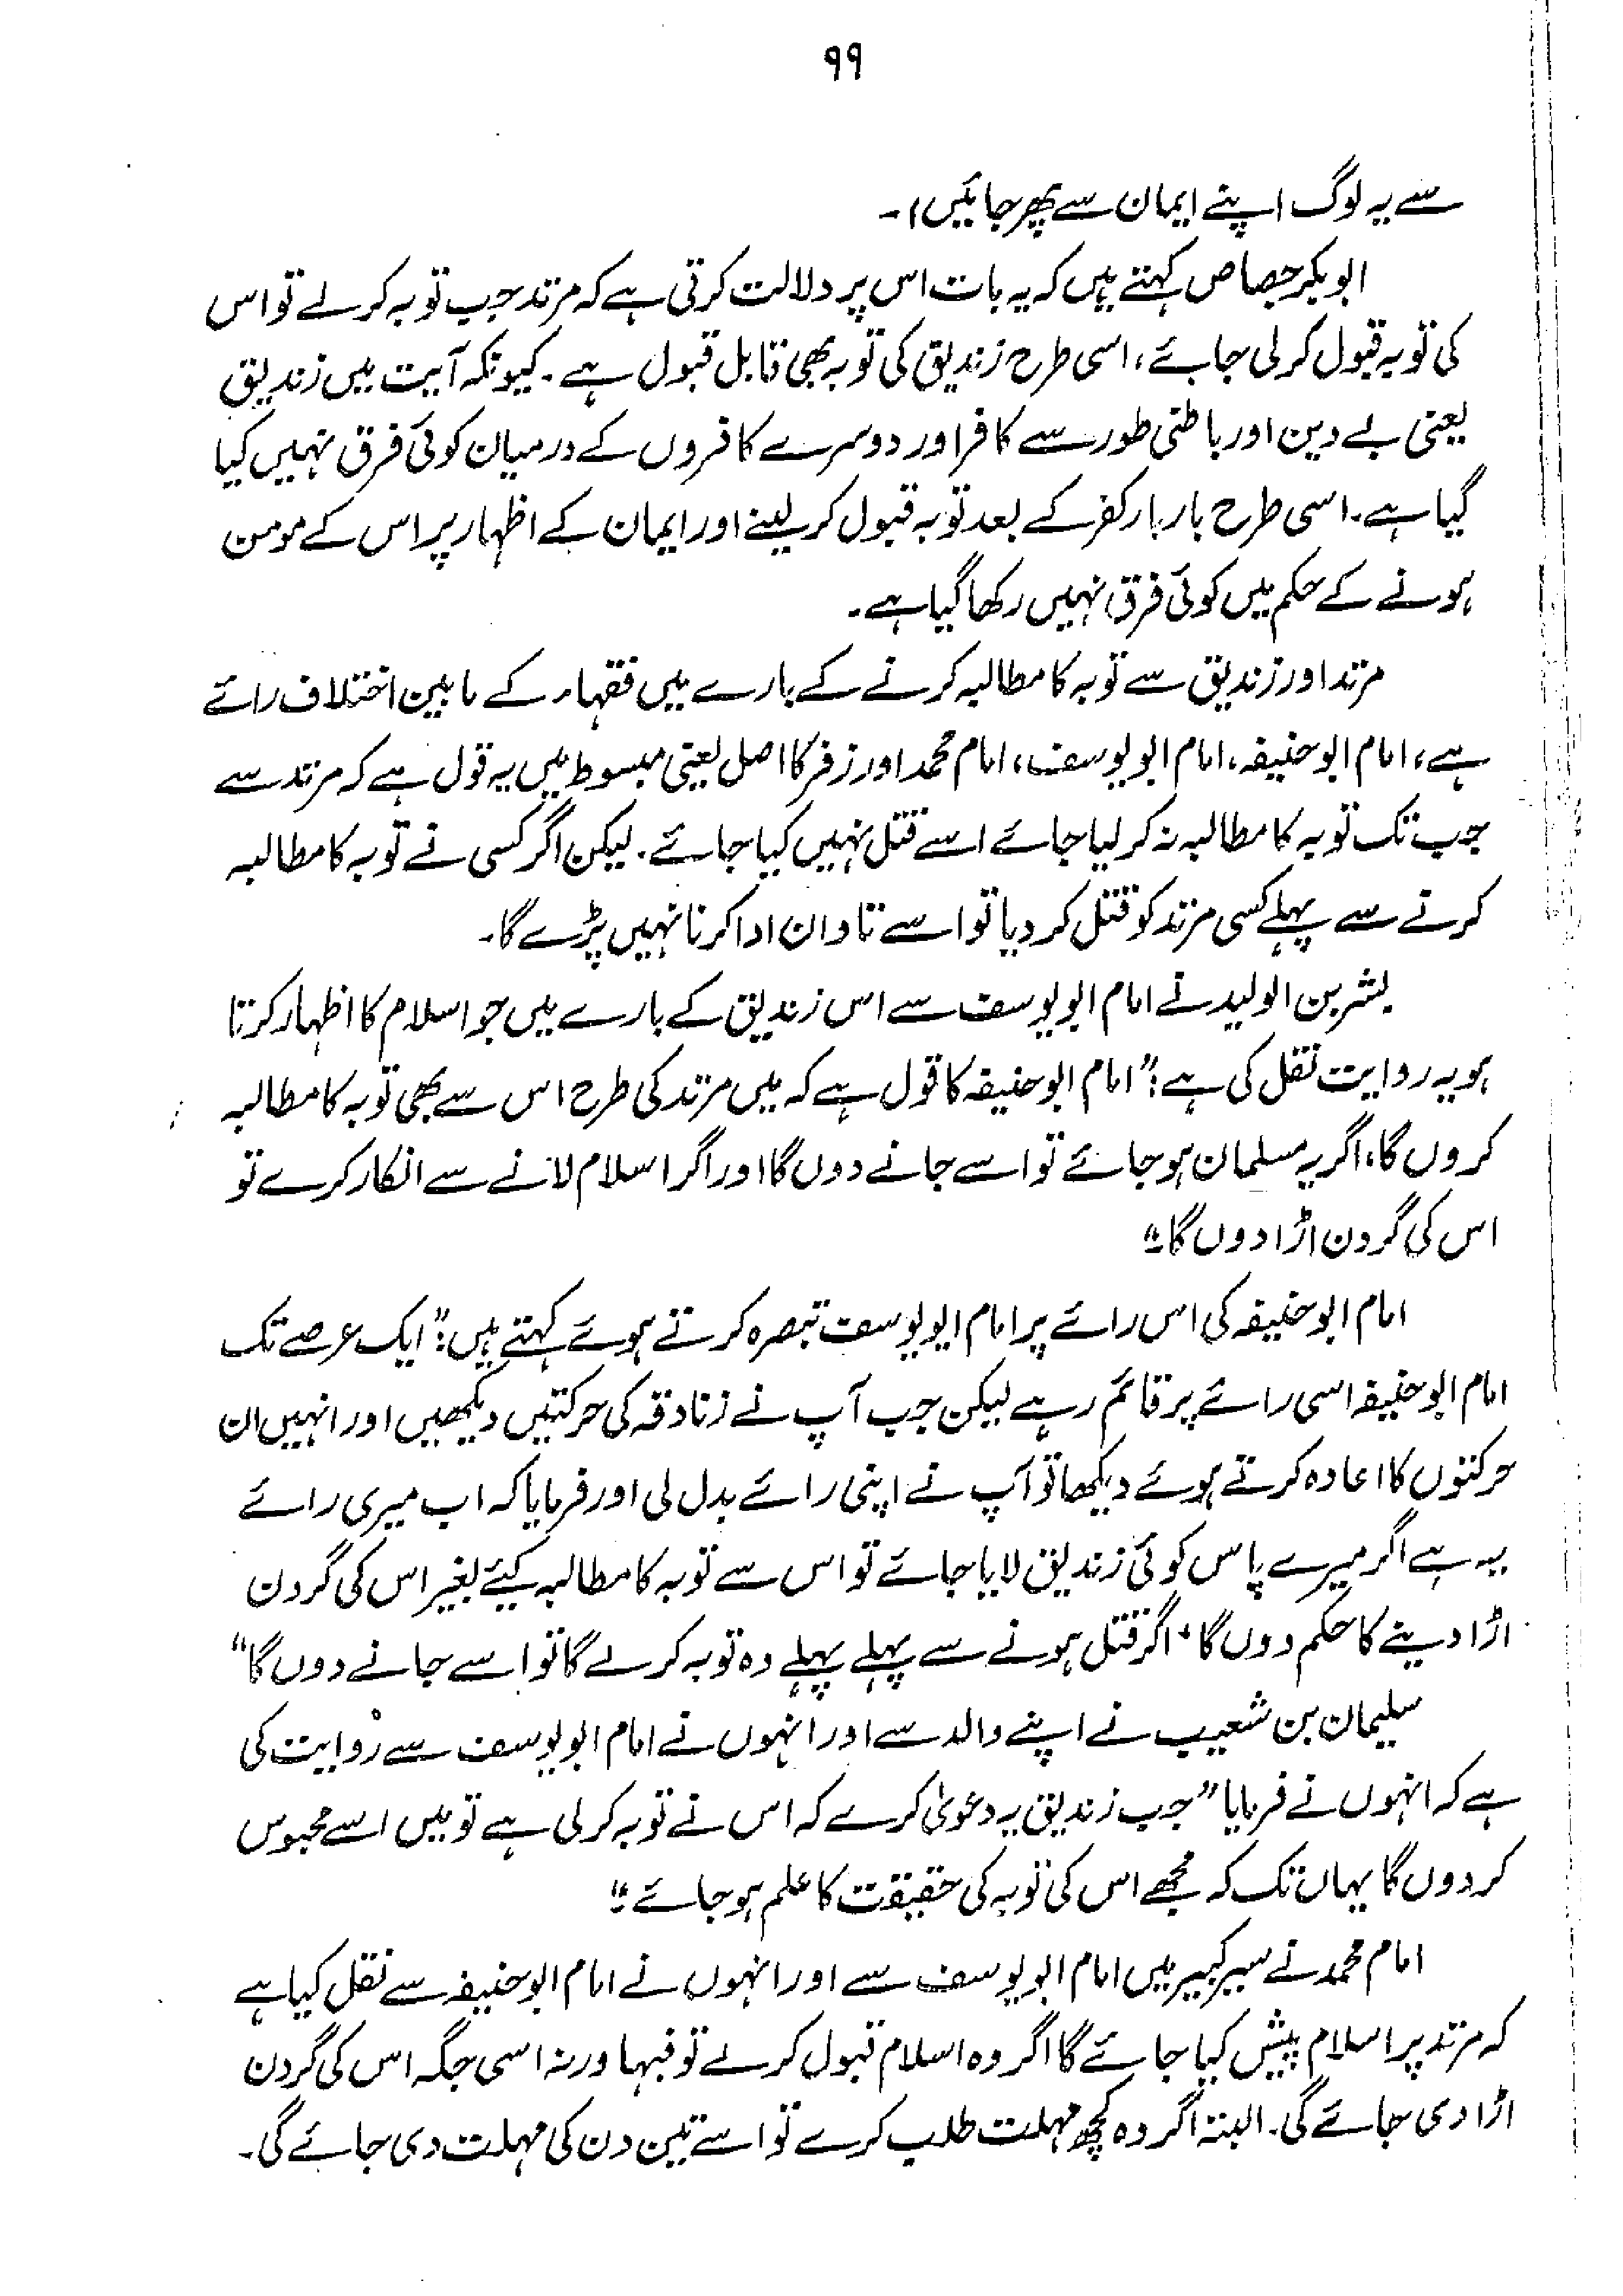 ۹۹
سے یہ لوگ اپنے ایمان سے پھر جائیں)۔
ابوبکر جصاص کہتے ہیں کہ یہ بات اس پر دلالت کرتی ہے کہ مرتد جب توبہ کرلے تو اس
کی توبہ قبول کرلی جائے، اسی طرح زندیق کی توبہ بھی قابل قبول ہے۔ کیونکہ آیت میں زندیق
یعنی بے دین اور باطنی طور سے کافر اور دوسرے کافروں کے درمیان کوئی فرق نہیں کیا
گیا ہے۔ اسی طرح بار بار کفر کے بعد توبہ قبول کر لینے اور ایمان کے اظہار پر اس کے مومن
ہونے کے حکم میں کوئی فرق نہیں رکھا گیا ہے۔
مرتد اور زندیق سے توبہ کا مطالبہ کرنے کے بارے میں فقہاء کے مابین اختلاف رائے
ہے، امام ابوحنیفہ، امام ابویوسف، امام محمد اور زفر کا اصل یعنی مبسوط میں یہ قول ہے کہ مرتد سے
جب تک توبہ کا مطالبہ نہ کر لیا جائے اسے قتل نہیں کیا جائے۔ لیکن اگر کسی نے توبہ کا مطالبہ
کرنے سے پہلے کسی مرتد کو قتل کر دیا تو اسے تاوان ادا کرنا نہیں پڑے گا۔
بشر بن الولید نے امام ابویوسف سے اس زندیق کے بارے میں جو اسلام کا اظہار کرتا
ہو یہ روایت نقل کی ہے: "امام ابوحنیفہ کا قول ہے کہ میں مرتد کی طرح اس سے بھی توبہ کا مطالبہ
کروں گا، اگر یہ مسلمان ہو جائے تو اسے جانے دوں گا اور اگر اسلام لانے سے انکار کرے تو
اس کی گردن اڑا دوں گا۔"
امام ابوحنیفہ کی اس رائے پر امام ابویوسف تبصرہ کرتے ہوئے کہتے ہیں: "ایک عرصے تک
امام ابوحنیفہ اسی رائے پر قائم رہے لیکن جب آپ نے زنادقہ کی حرکتیں دیکھیں اور انہیں ان
حرکتوں کا اعادہ کرتے ہوئے دیکھا تو آپ نے اپنی رائے بدل لی اور فرمایا کہ اب میری رائے
یہ ہے اگر میرے پاس کوئی زندیق لایا جائے تو اس سے توبہ کا مطالبہ کیئے بغیر اس کی گردن
اڑا دینے کا حکم دوں گا، اگر قتل ہونے سے پہلے پہلے وہ توبہ کرلے گا تو اسے جانے دوں گا"
سلیمان بن شعیب نے اپنے والد سے اور انہوں نے امام ابویوسف سے روایت کی
ہے کہ انہوں نے فرمایا "جب زندیق یہ دعویٰ کرے کہ اس نے توبہ کرلی ہے تو میں اسے محبوس
کر دوں گا یہاں تک کہ مجھے اس کی توبہ کی حقیقت کا علم ہو جائے۔"
امام محمد نے سیر کبیر میں امام ابویوسف سے اور انہوں نے امام ابوحنیفہ سے نقل کیا ہے
کہ مرتد پر اسلام پیش کیا جائے گا اگر وہ اسلام قبول کرلے تو فبہا ورنہ اسی جگہ اس کی گردن
اڑا دی جائے گی۔ البتہ اگر وہ کچھ مہلت طلب کرے تو اسے تین دن کی مہلت دی جائے گی۔